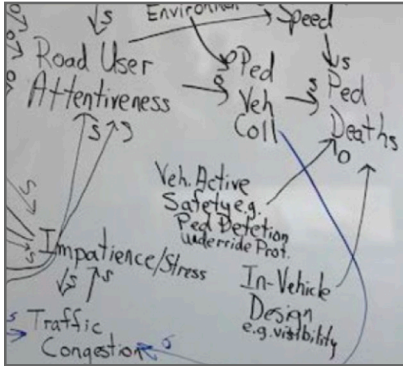 Speed
Road User
Attentiveness
Ped
Veh
Coll
Ped
Deaths
Veh. Active
Safety e.g.
Ped Detetion
Underride Prot.
Impatience/Stress
In-Vehicle
Design
e.g. visibility
Traffic
Congestion
S
S
S
S
S
S
S
S
O